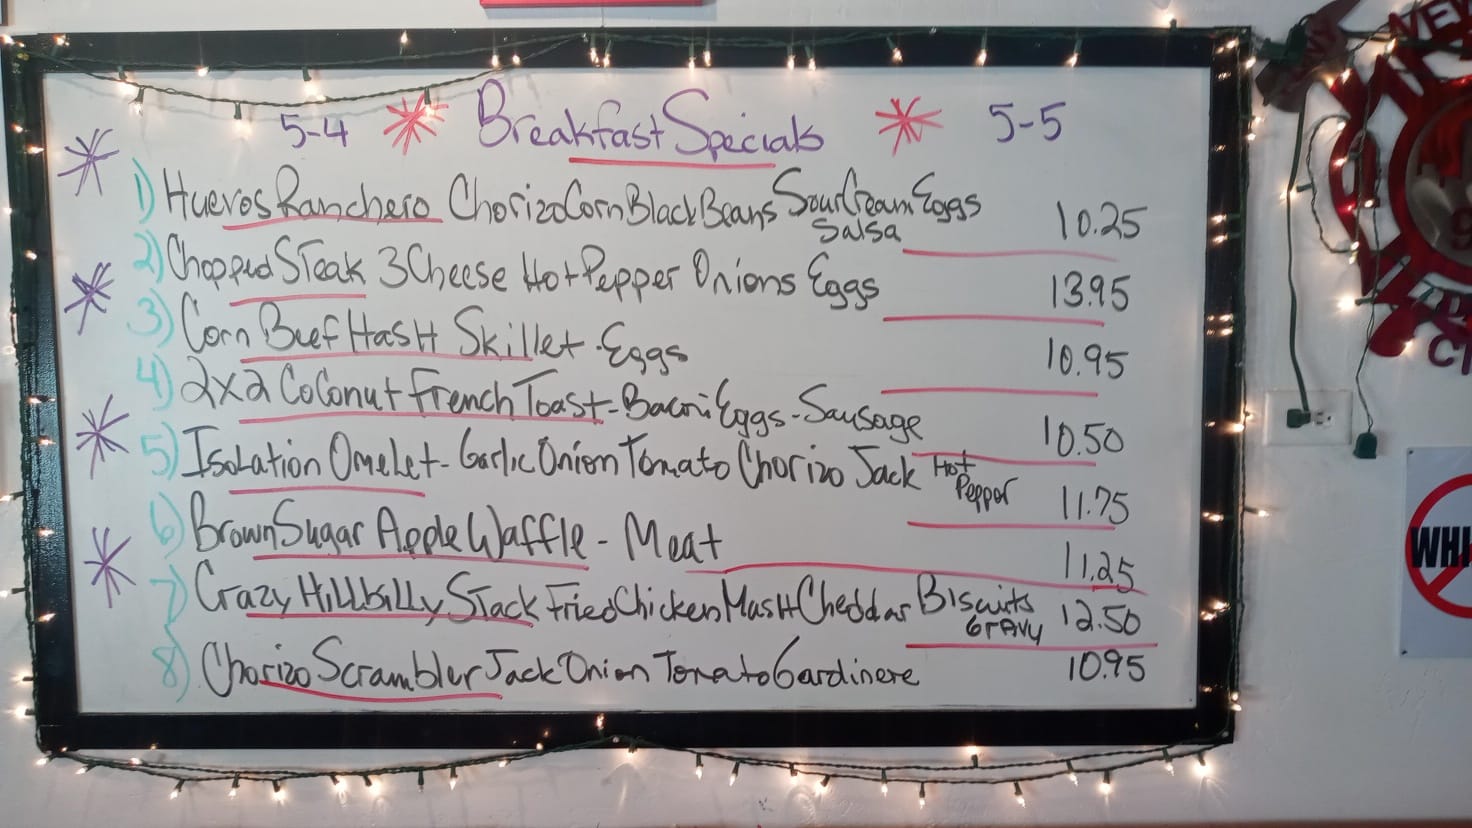 5-4 Breakfast Specials 5-5
1) Huevos Ranchero Chorizo Corn Black Beans Sour Cream Eggs Salsa 10.25
2) Chopped Steak 3 Cheese Hot Pepper Onions Eggs 13.95
3) Corn Beef Hash Skillet - Eggs 10.95
4) 2x2 Coconut French Toast - Bacon Eggs - Sausage 10.50
5) Isolation Omelet - Garlic Onion Tomato Chorizo Jack Hot Pepper 11.75
6) Brown Sugar Apple Waffle - Meat 11.25
7) Crazy Hillbilly Stack Fried Chicken Mash Cheddar Biscuits Gravy 12.50
8) Chorizo Scrambler Jack Onion Tomato Gardinere 10.95